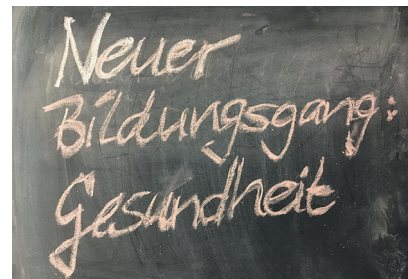 Neuer
Bildungsgang:
Gesundheit